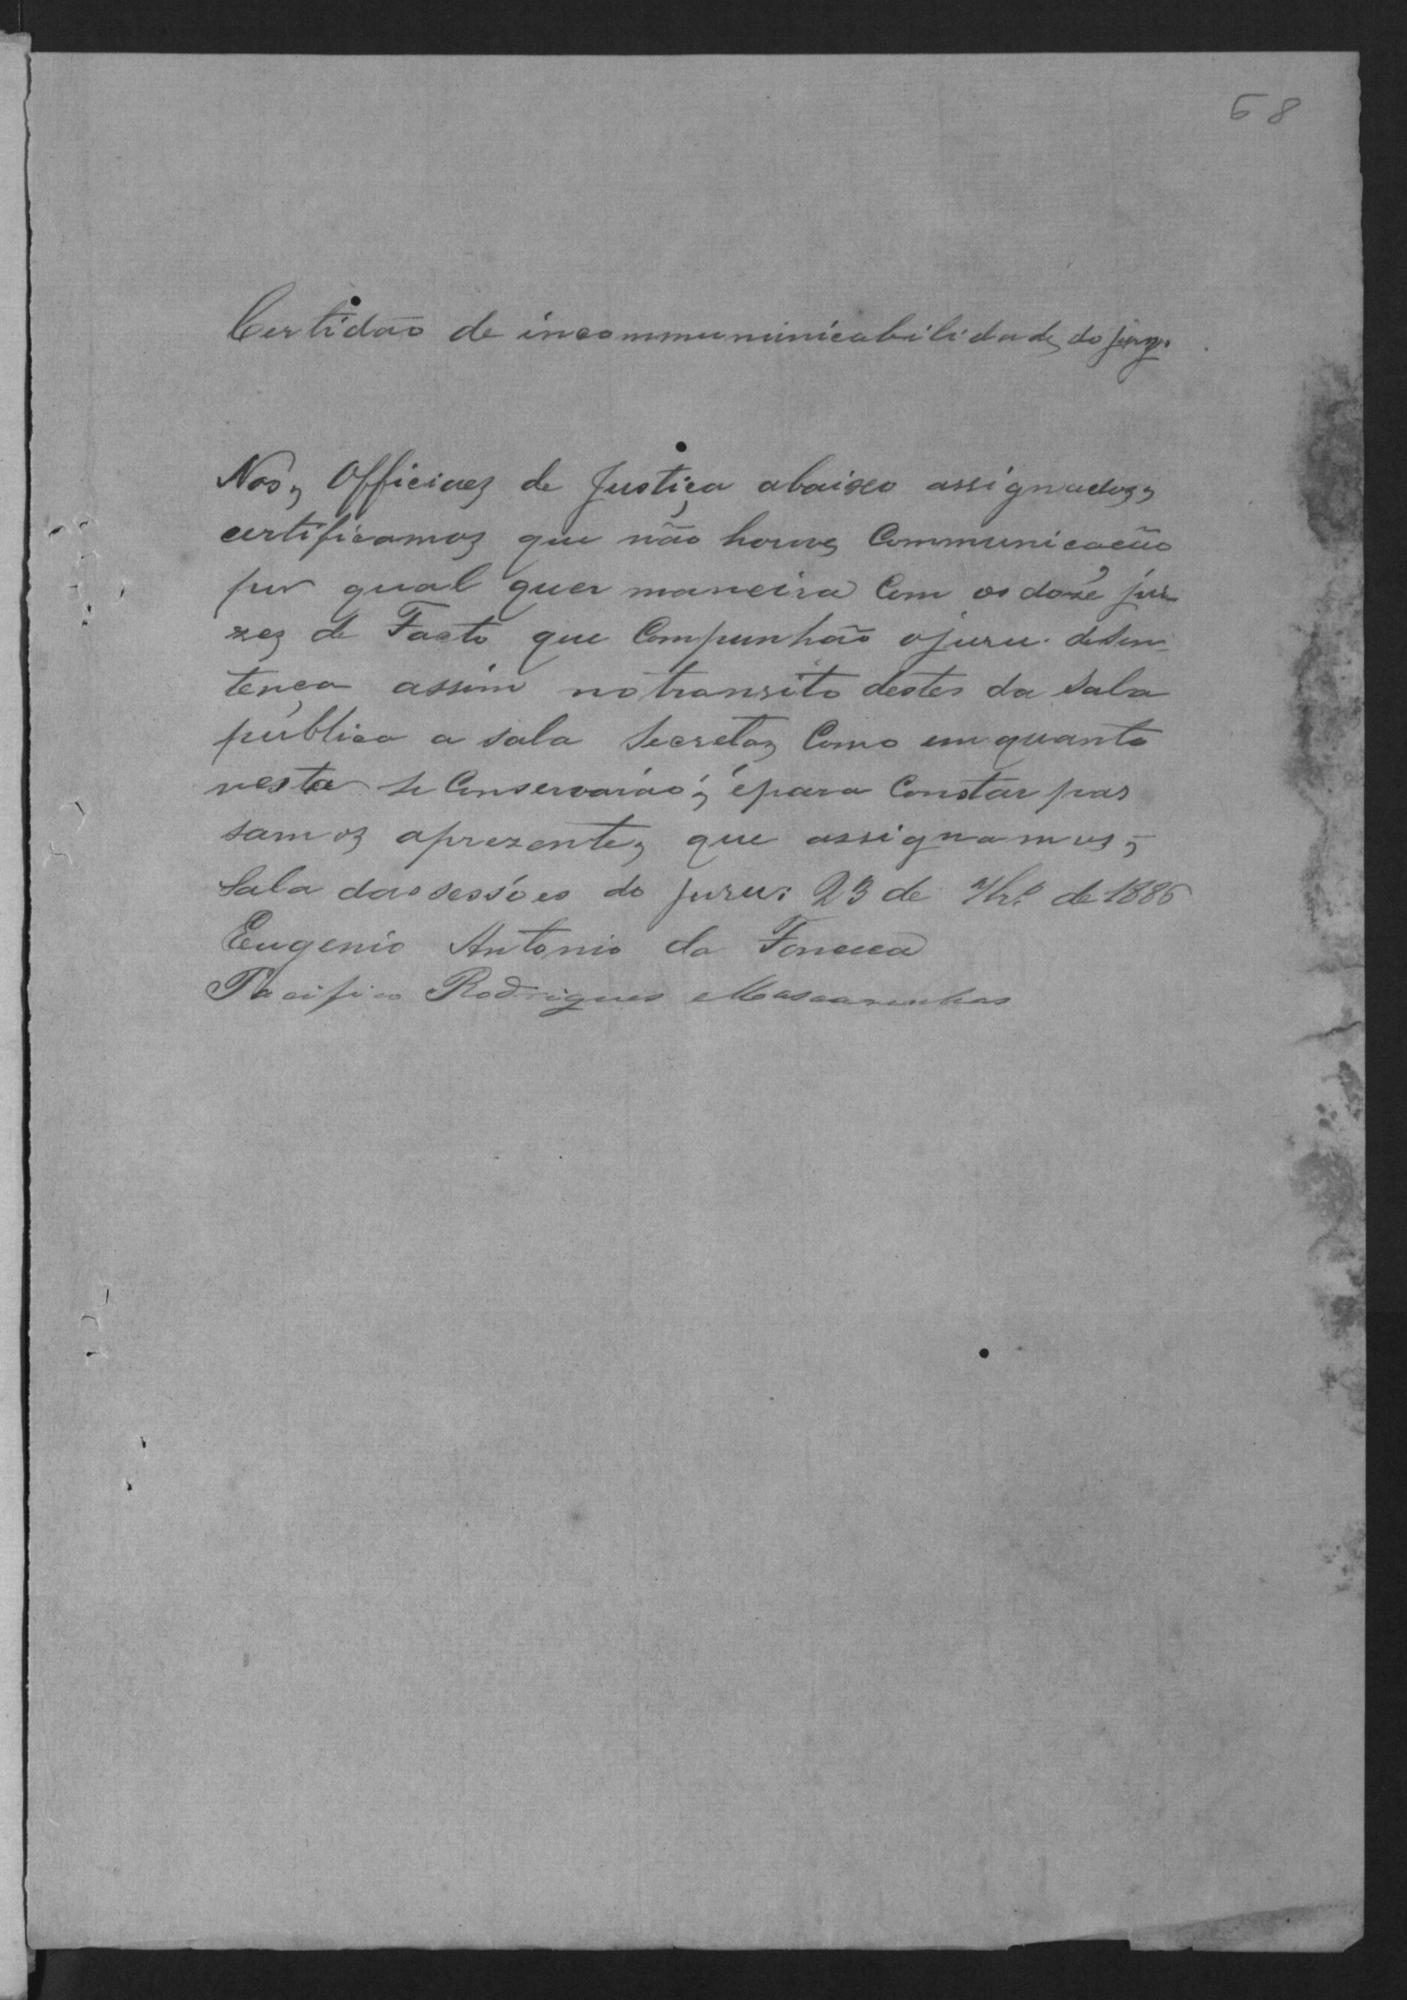 68
Certidão de incommumunicabilidade, do jury.
Nos, Officiaes de Justiça abaixo assignados,
certificamos que não houve, Communicacão
por qual quer maneira Com os doze jui-
zes de Facto que Compunhão o juru. de Sen-
tença assim no transito destes da Sala
publica a sala Secreta, Como em quanto
nesta se Conservarão; é para Constar pas
samos aprezente, que assignamos,
Sala das sessões do juru: 23 de de 1886
Eugenio Antonio da Fonceca
Pacifico Rodrigues Mascarenhas